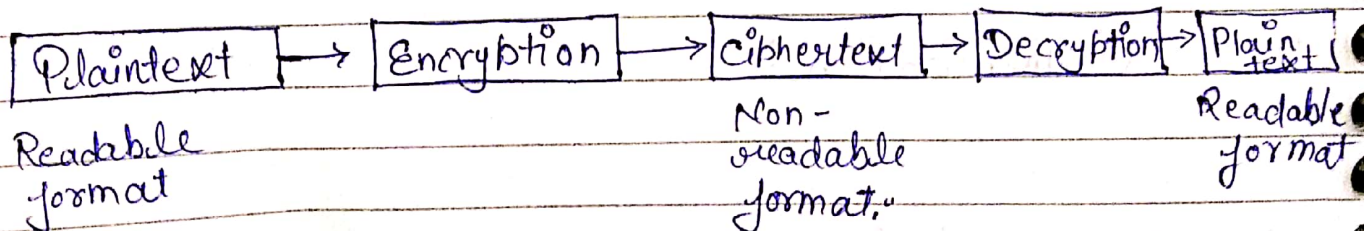 Plaintext → Encryption → Ciphertext → Decryption → Plain
text
Readable format
Non-
readable
format.
Readable
format